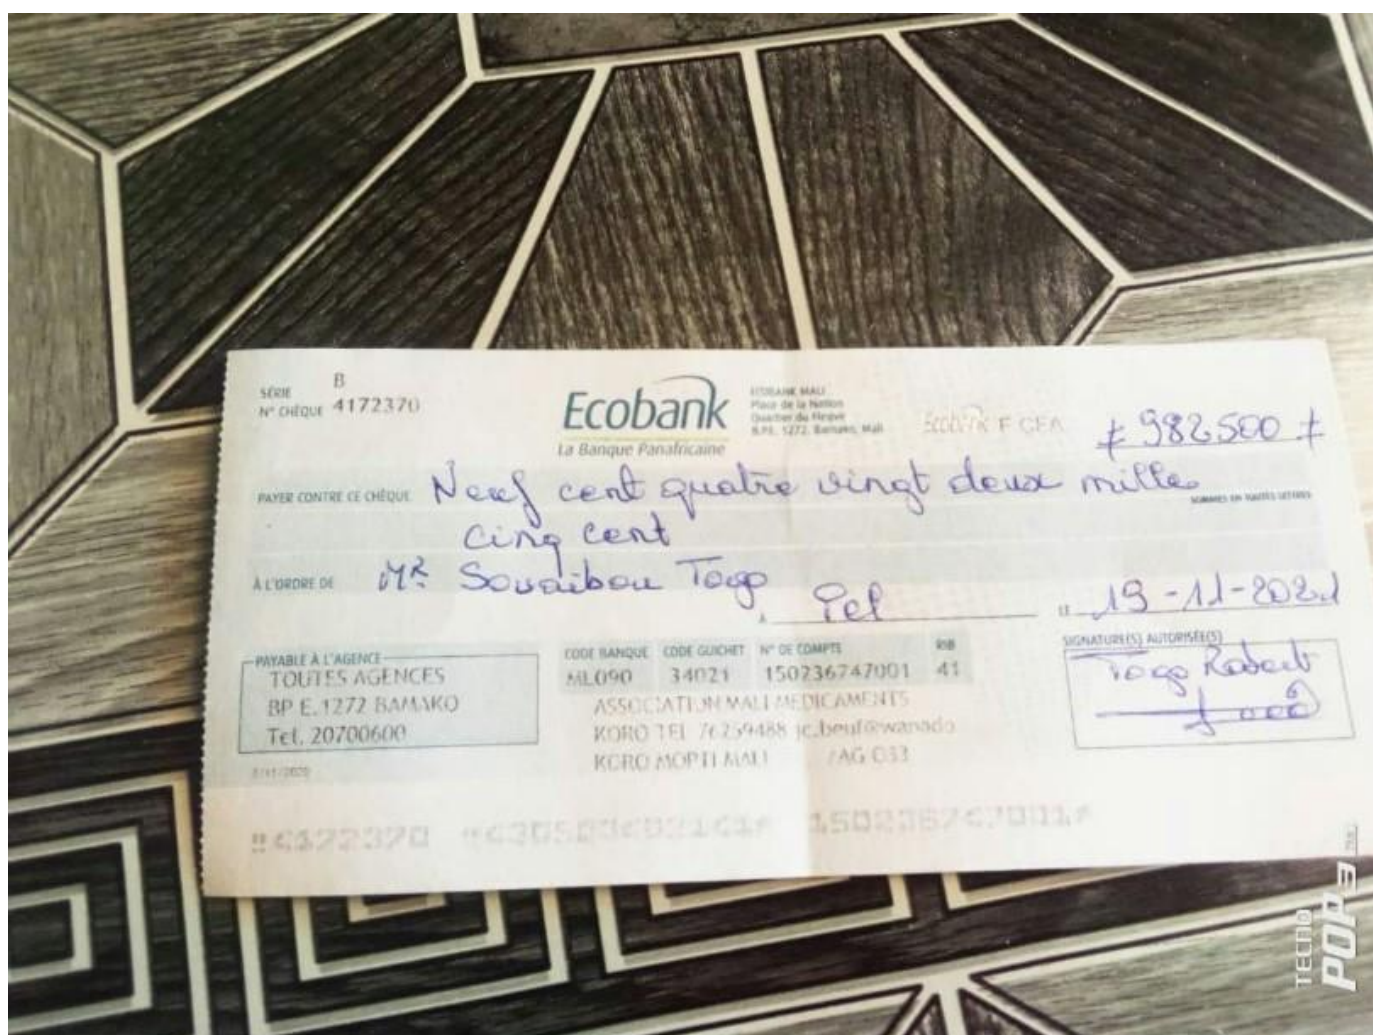 SÉRIE B
N° CHÈQUE 4172370
Ecobank
La Banque Panafricaine
ECOBANK MALI
Place de la Nation
Quartier du Fleuve
B.P.E. 1272. Bamako, Mali
Ecobank F CFA
≠ 982.500 ≠
PAYER CONTRE CE CHÈQUE Neuf cent quatre vingt deux mille
SOMMES EN TOUTES LETTRES
cinq cent
À L'ORDRE DE Mr Souaibou Togo
A Pel LE 19-11-2021
PAYABLE À L'AGENCE
TOUTES AGENCES
BP E. 1272 BAMAKO
Tel. 20700600
CODE BANQUE CODE GUICHET N° DE COMPTE RIB
ML090 34021 150236747001 41
ASSOCIATION MALI MEDICAMENTS
KORO TEL 76259488 jc.beuf@wanado
KORO MOPTI MALI /AG 033
SIGNATURE(S) AUTORISÉE(S)
Togo Robert
4172370
TECNO
POP 3